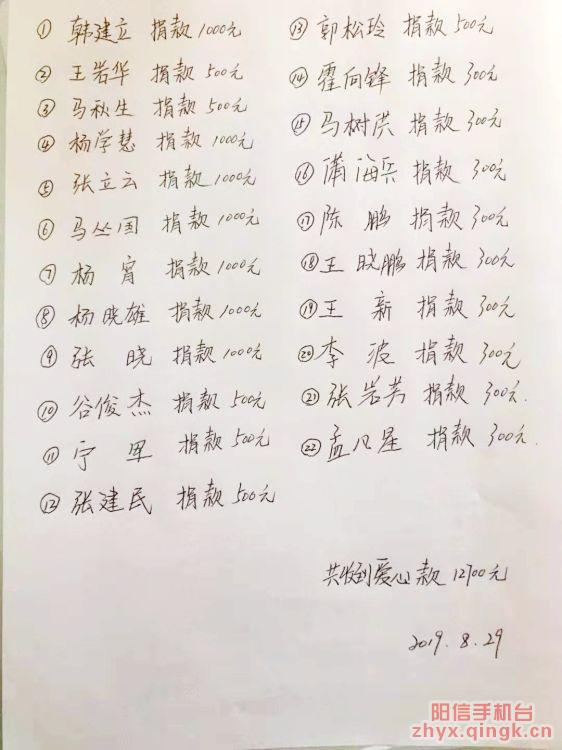 ① 韩建立 捐款1000元
② 王岩华 捐款500元
③ 马秋生 捐款500元
④ 杨学慧 捐款1000元
⑤ 张立云 捐款1000元
⑥ 马丛国 捐款1000元
⑦ 杨宵 捐款1000元
⑧ 杨晓雄 捐款1000元
⑨ 张晓 捐款1000元
⑩ 谷俊杰 捐款500元
⑪ 宁军 捐款500元
⑫ 张建民 捐款500元
⑬ 郭松玲 捐款500元
⑭ 霍向锋 捐款300元
⑮ 马树洪 捐款300元
⑯ 蒲海兵 捐款300元
⑰ 陈鹏 捐款300元
⑱ 王晓鹏 捐款300元
⑲ 王新 捐款300元
⑳ 李波 捐款300元
㉑ 张岩芳 捐款300元.
㉒ 孟凡星 捐款300元.
共收到爱心款12700元
2019.8.29
阳信手机台
zhyx.qingk.cn